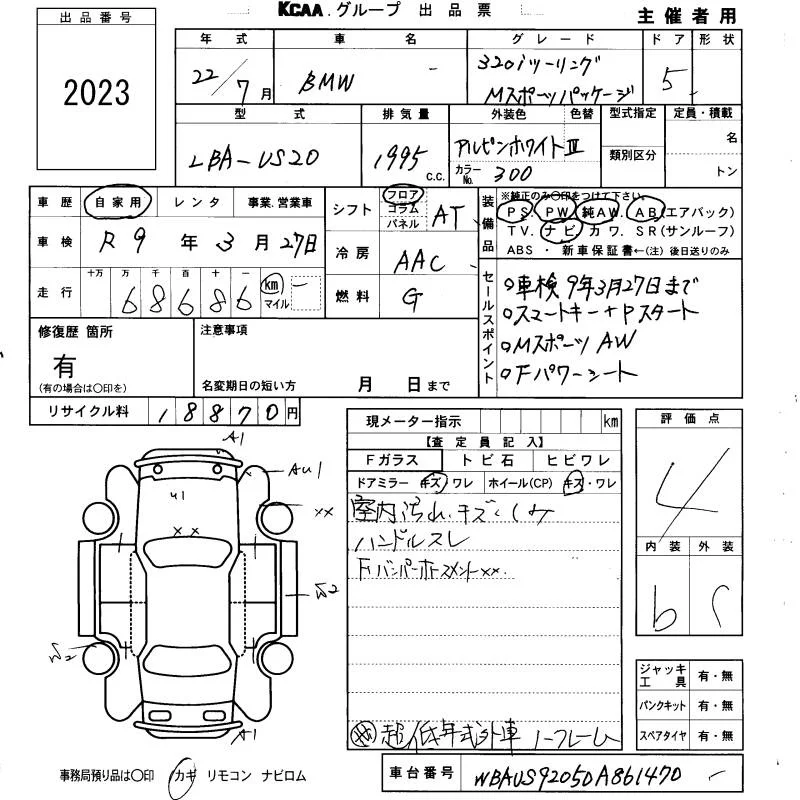 KCAA.グループ 出品票
主催者用
出品番号
2023
年式 車名 グレード ドア 形状
22/7月 BMW 320iツーリング Mスポーツパッケージ 5
型式 排気量 外装色 色替 型式指定 定員・積載
LBA-US20 1995c.c. アルピンホワイトⅢ 類別区分 名
カラーNo. 300 トン
車歴 自家用 レンタ 事業.営業車
車検 R9年3月27日
走行 十万 万 千 百 十 一
68686 km マイル
シフト フロア コラム パネル AT
冷房 AAC
燃料 G
装備品 ※純正のみ○印をつけて下さい。
PS. PW. 純AW. AB(エアバック)
TV. ナビ カワ. SR(サンルーフ)
ABS ・ 新車保証書←(注) 後日送りのみ
セールスポイント
○車検 9年3月27日まで
○スマートキー+Pスタート
○Mスポーツ AW
○Fパワーシート
修復歴 箇所
有
(有の場合は○印を)
注意事項
名変期日の短い方 月 日まで
リサイクル料 18870円
現メーター指示 km
【査定員記入】
Fガラス トビ石 ヒビワレ
ドアミラー キズ・ワレ ホイール(CP) キズ・ワレ
室内汚れ.キズ・しみ
ハンドルスレ
Fバンパーホースメント××.
超低年式外車 ノークレーム
評価点
4
内装 外装
b c
A1
AU1
U1
××
××
W2
W2
A1
ジャッキ工具 有・無
パンクキット 有・無
スペアタイヤ 有・無
事務局預り品は○印 カギ リモコン ナビロム
車台番号 WBAUS92050A861470